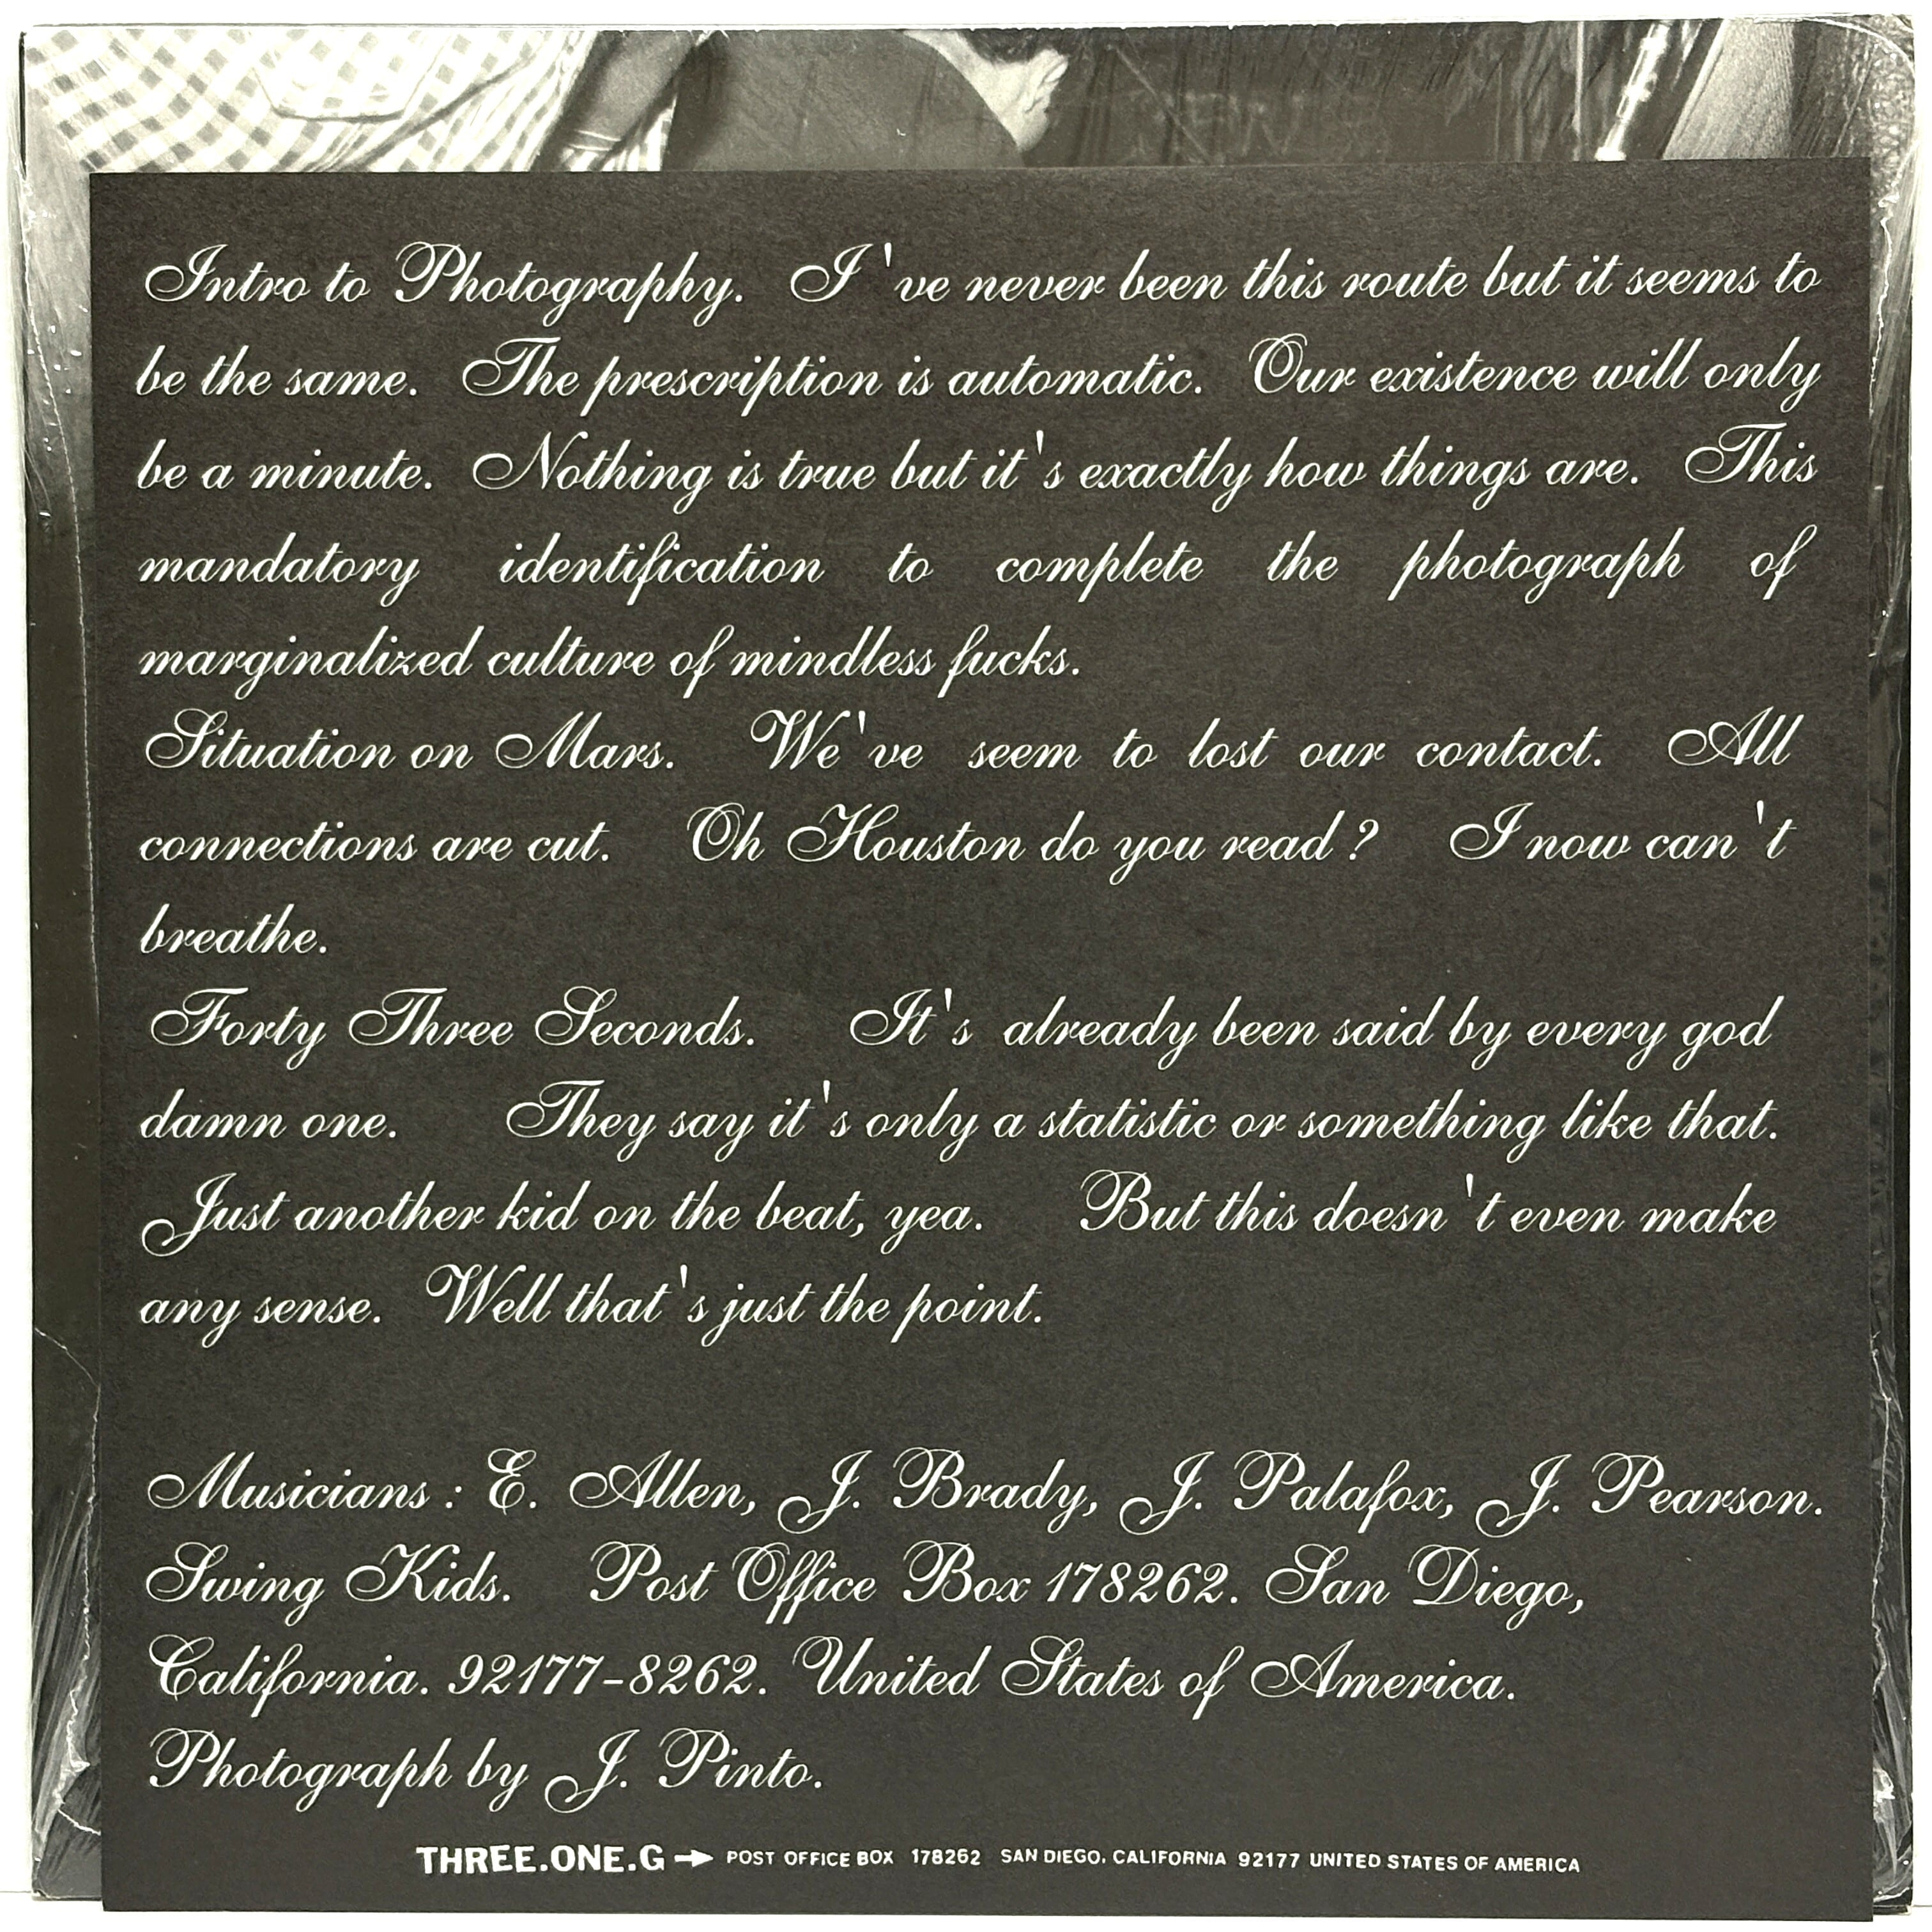 Intro to Photography. I've never been this route but it seems to
be the same. The prescription is automatic. Our existence will only
be a minute. Nothing is true but it's exactly how things are. This
mandatory identification to complete the photograph of
marginalized culture of mindless fucks.
Situation on Mars. We've seem to lost our contact. All
connections are cut. Oh Houston do you read? I now can't
breathe.
Forty Three Seconds. It's already been said by every god
damn one. They say it's only a statistic or something like that.
Just another kid on the beat, yea. But this doesn't even make
any sense. Well that's just the point.
Musicians: E. Allen, J. Brady, J. Palafox, J. Pearson.
Swing Kids. Post Office Box 178262. San Diego,
California. 92177-8262. United States of America.
Photograph by J. Pinto.
THREE.ONE.G → POST OFFICE BOX 178262 SAN DIEGO. CALIFORNIA 92177 UNITED STATES OF AMERICA